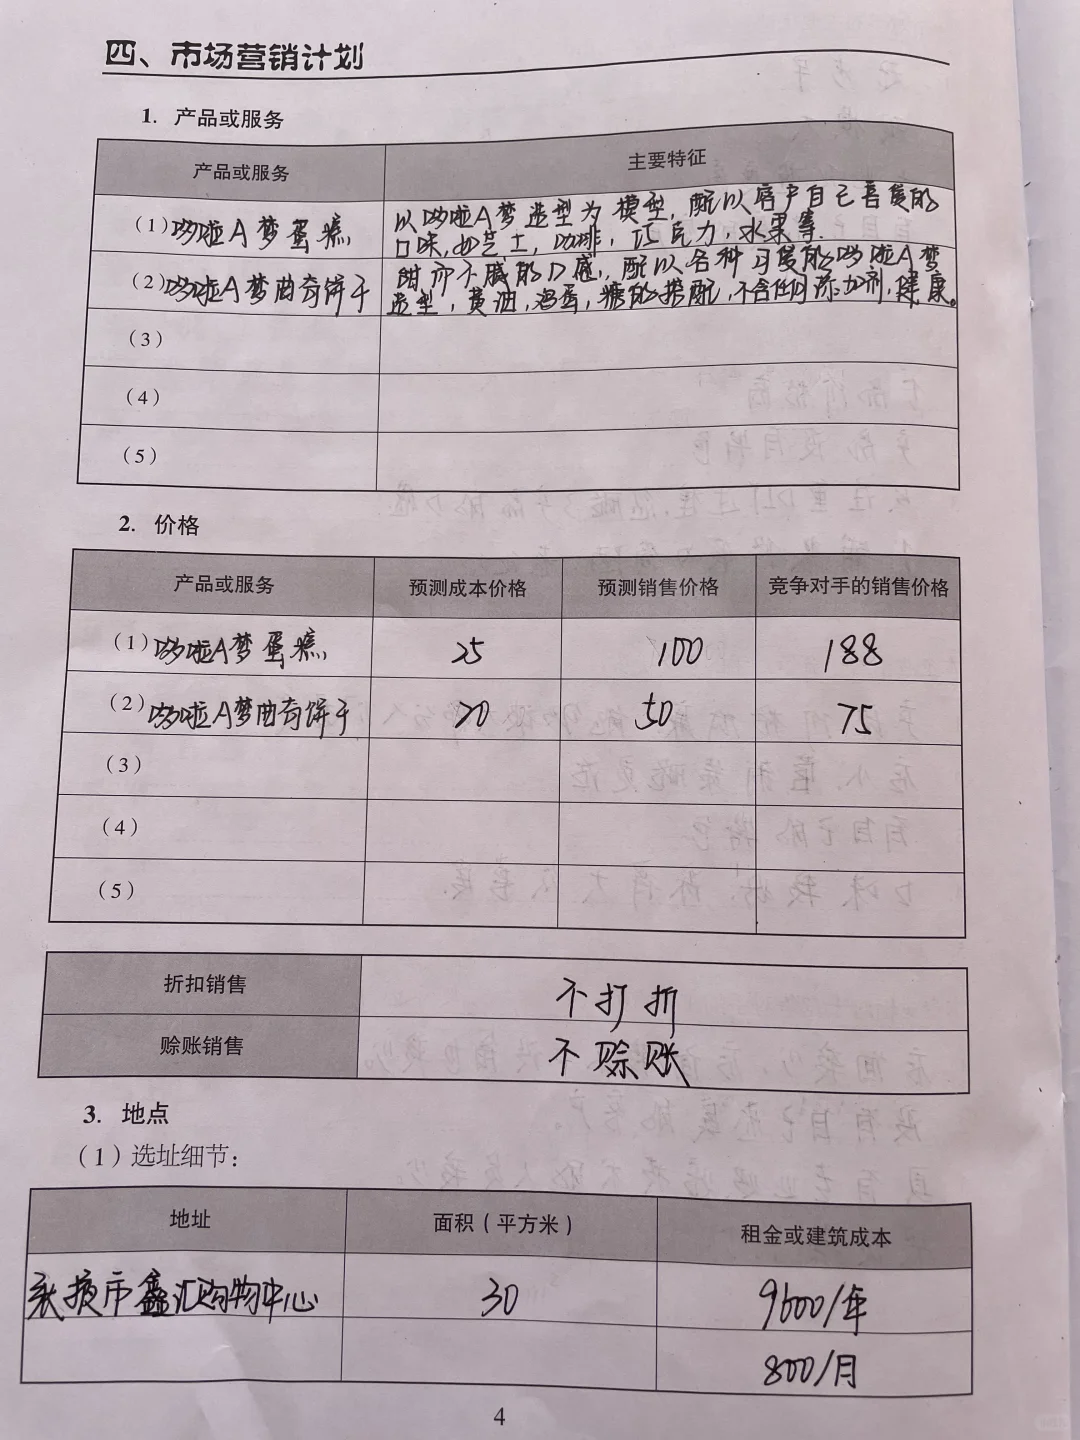 四、市场营销计划
1. 产品或服务
产品或服务 主要特征
(1)哆啦A梦蛋糕 以哆啦A梦造型为模型,配以客户自己喜爱的
口味,如芝士,咖啡,巧克力,水果等.
(2)哆啦A梦曲奇饼干 甜而不腻的口感,配以各种可爱的哆啦A梦
造型,黄油,鸡蛋,糖的搭配,不含任何添加剂,健康。
(3)
(4)
(5)
2. 价格
产品或服务 预测成本价格 预测销售价格 竞争对手的销售价格
(1)哆啦A梦蛋糕 25 100 188
(2)哆啦A梦曲奇饼干 20 50 75
(3)
(4)
(5)
折扣销售 不打折
赊账销售 不赊账
3. 地点
(1)选址细节:
地址 面积(平方米) 租金或建筑成本
市鑫汇购物中心 30 9600/年
800/月
4